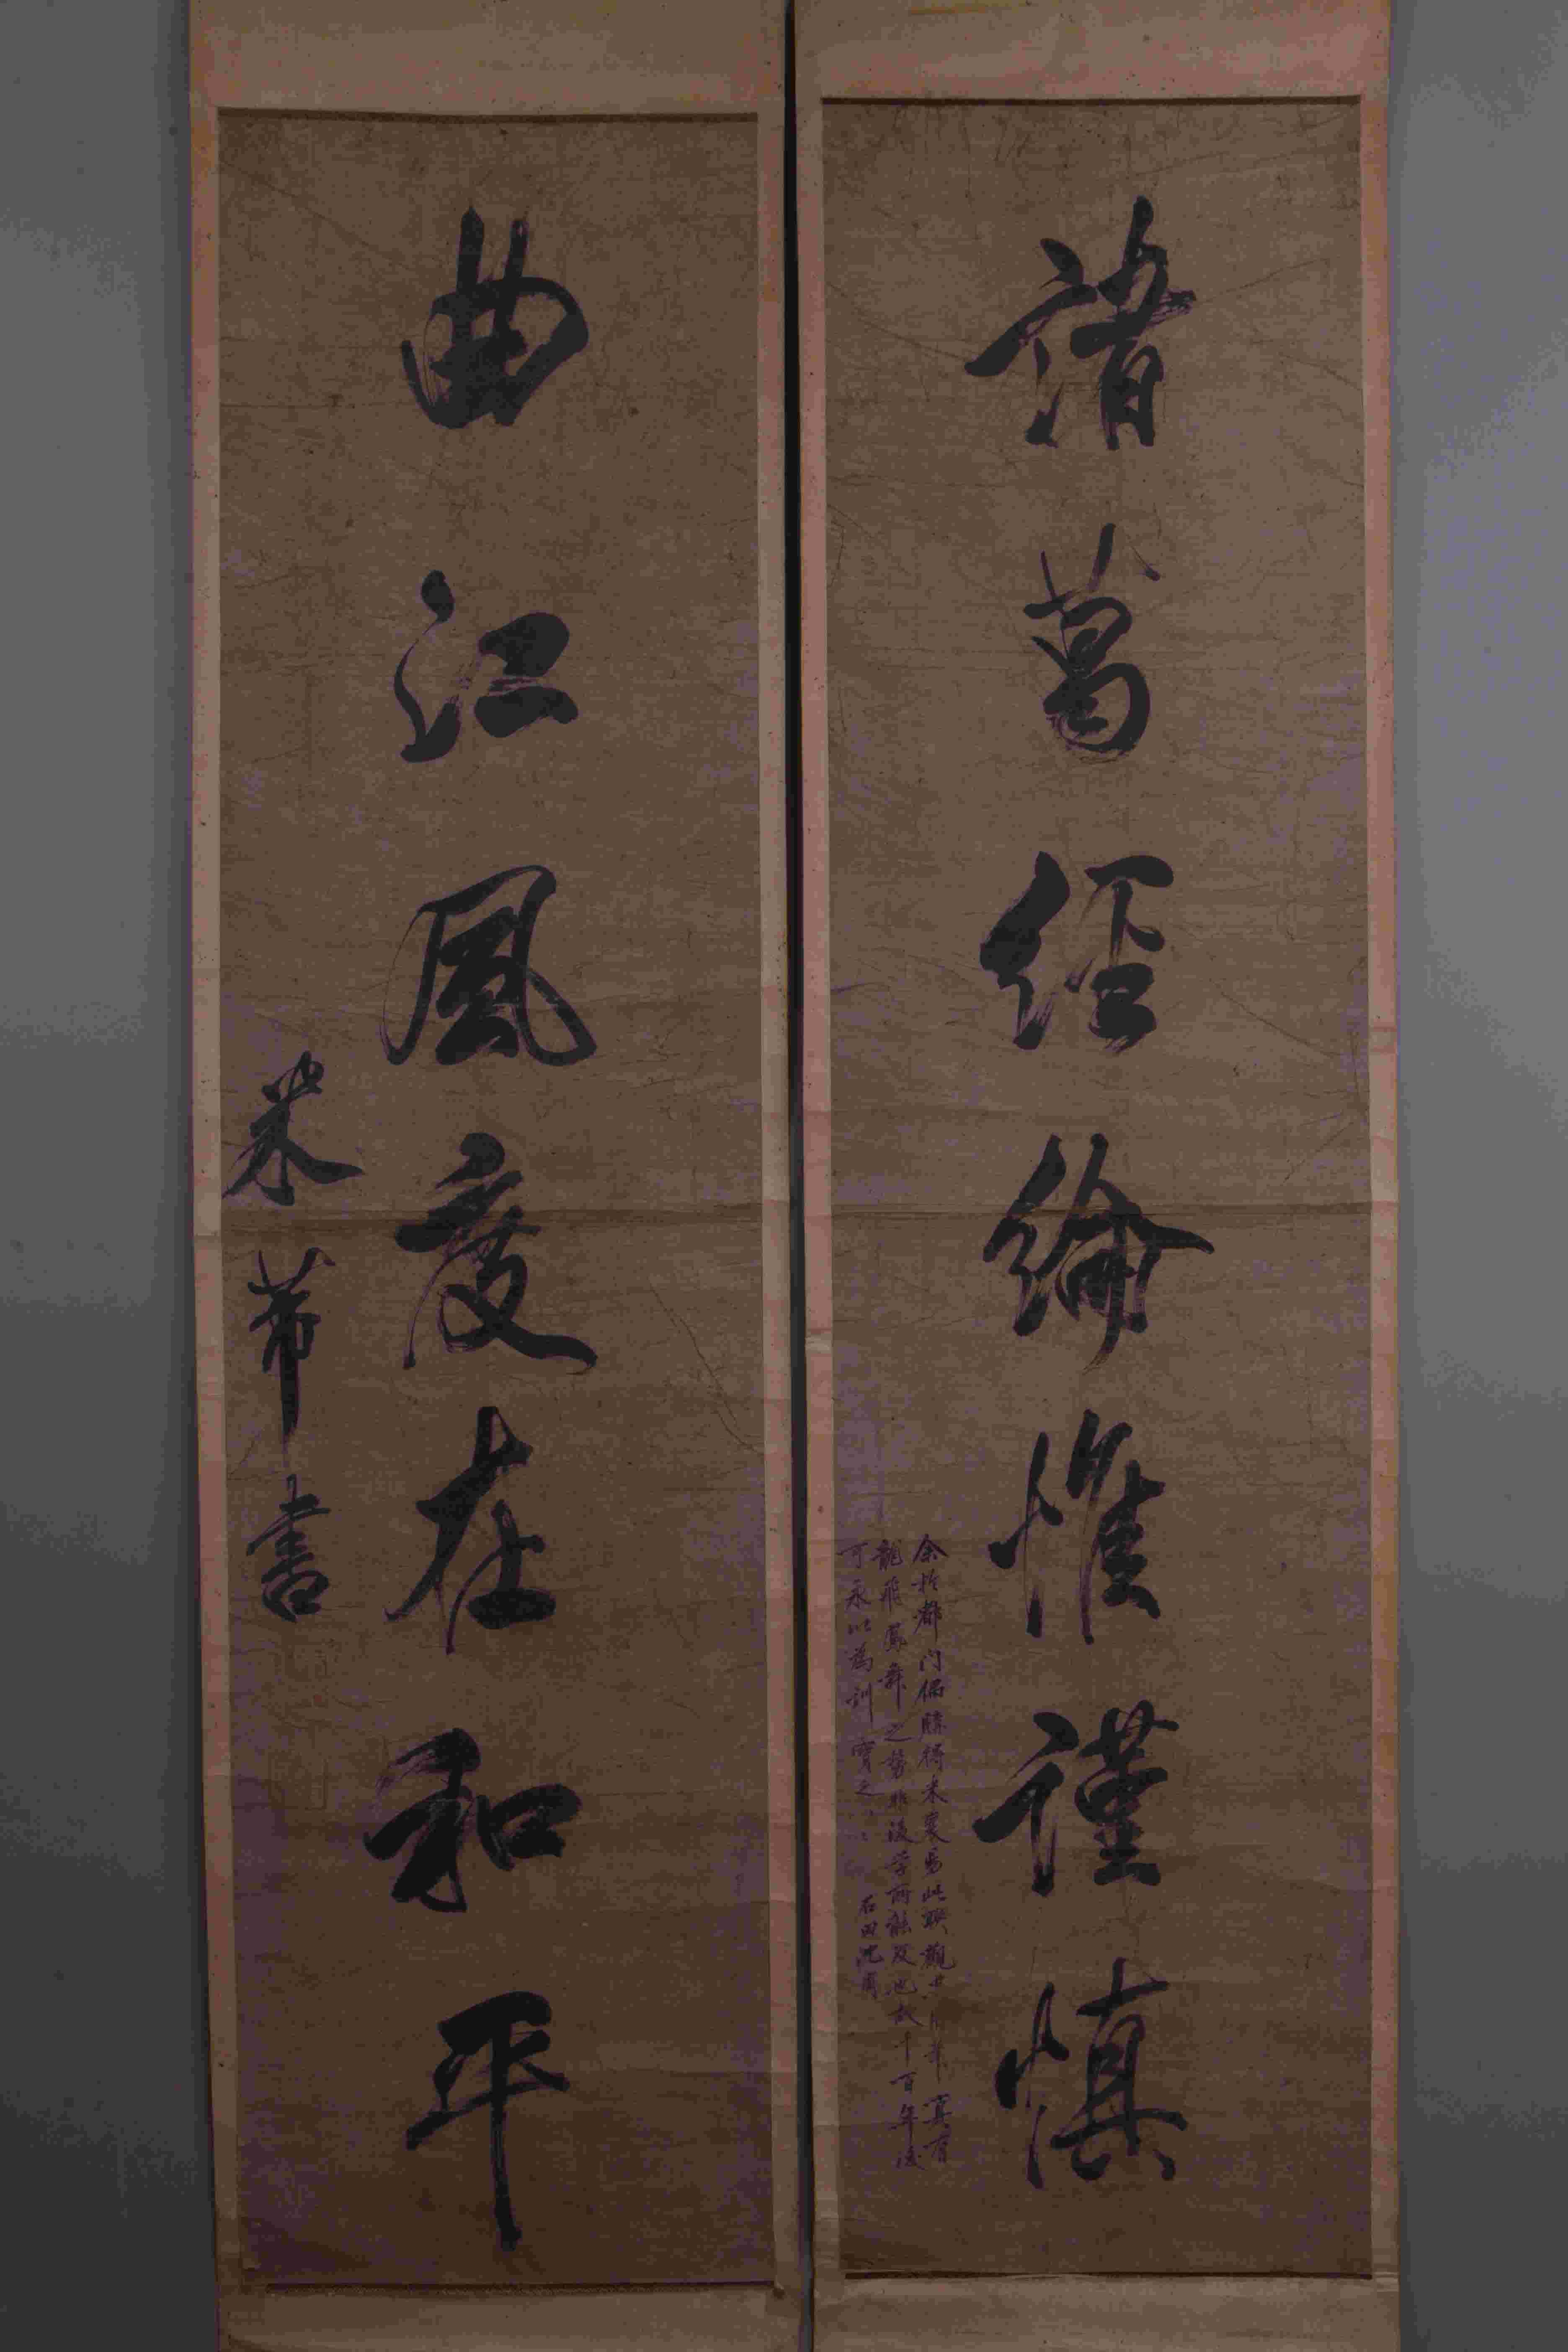 諸葛經綸惟謹慎
余於都門偶購得米襄陽此聯觀其用筆真有
龍飛鳳舞之勢非後學所能及也故千百年後
可永以為訓寶之
石田沈周
曲江風度在和平
米芾書